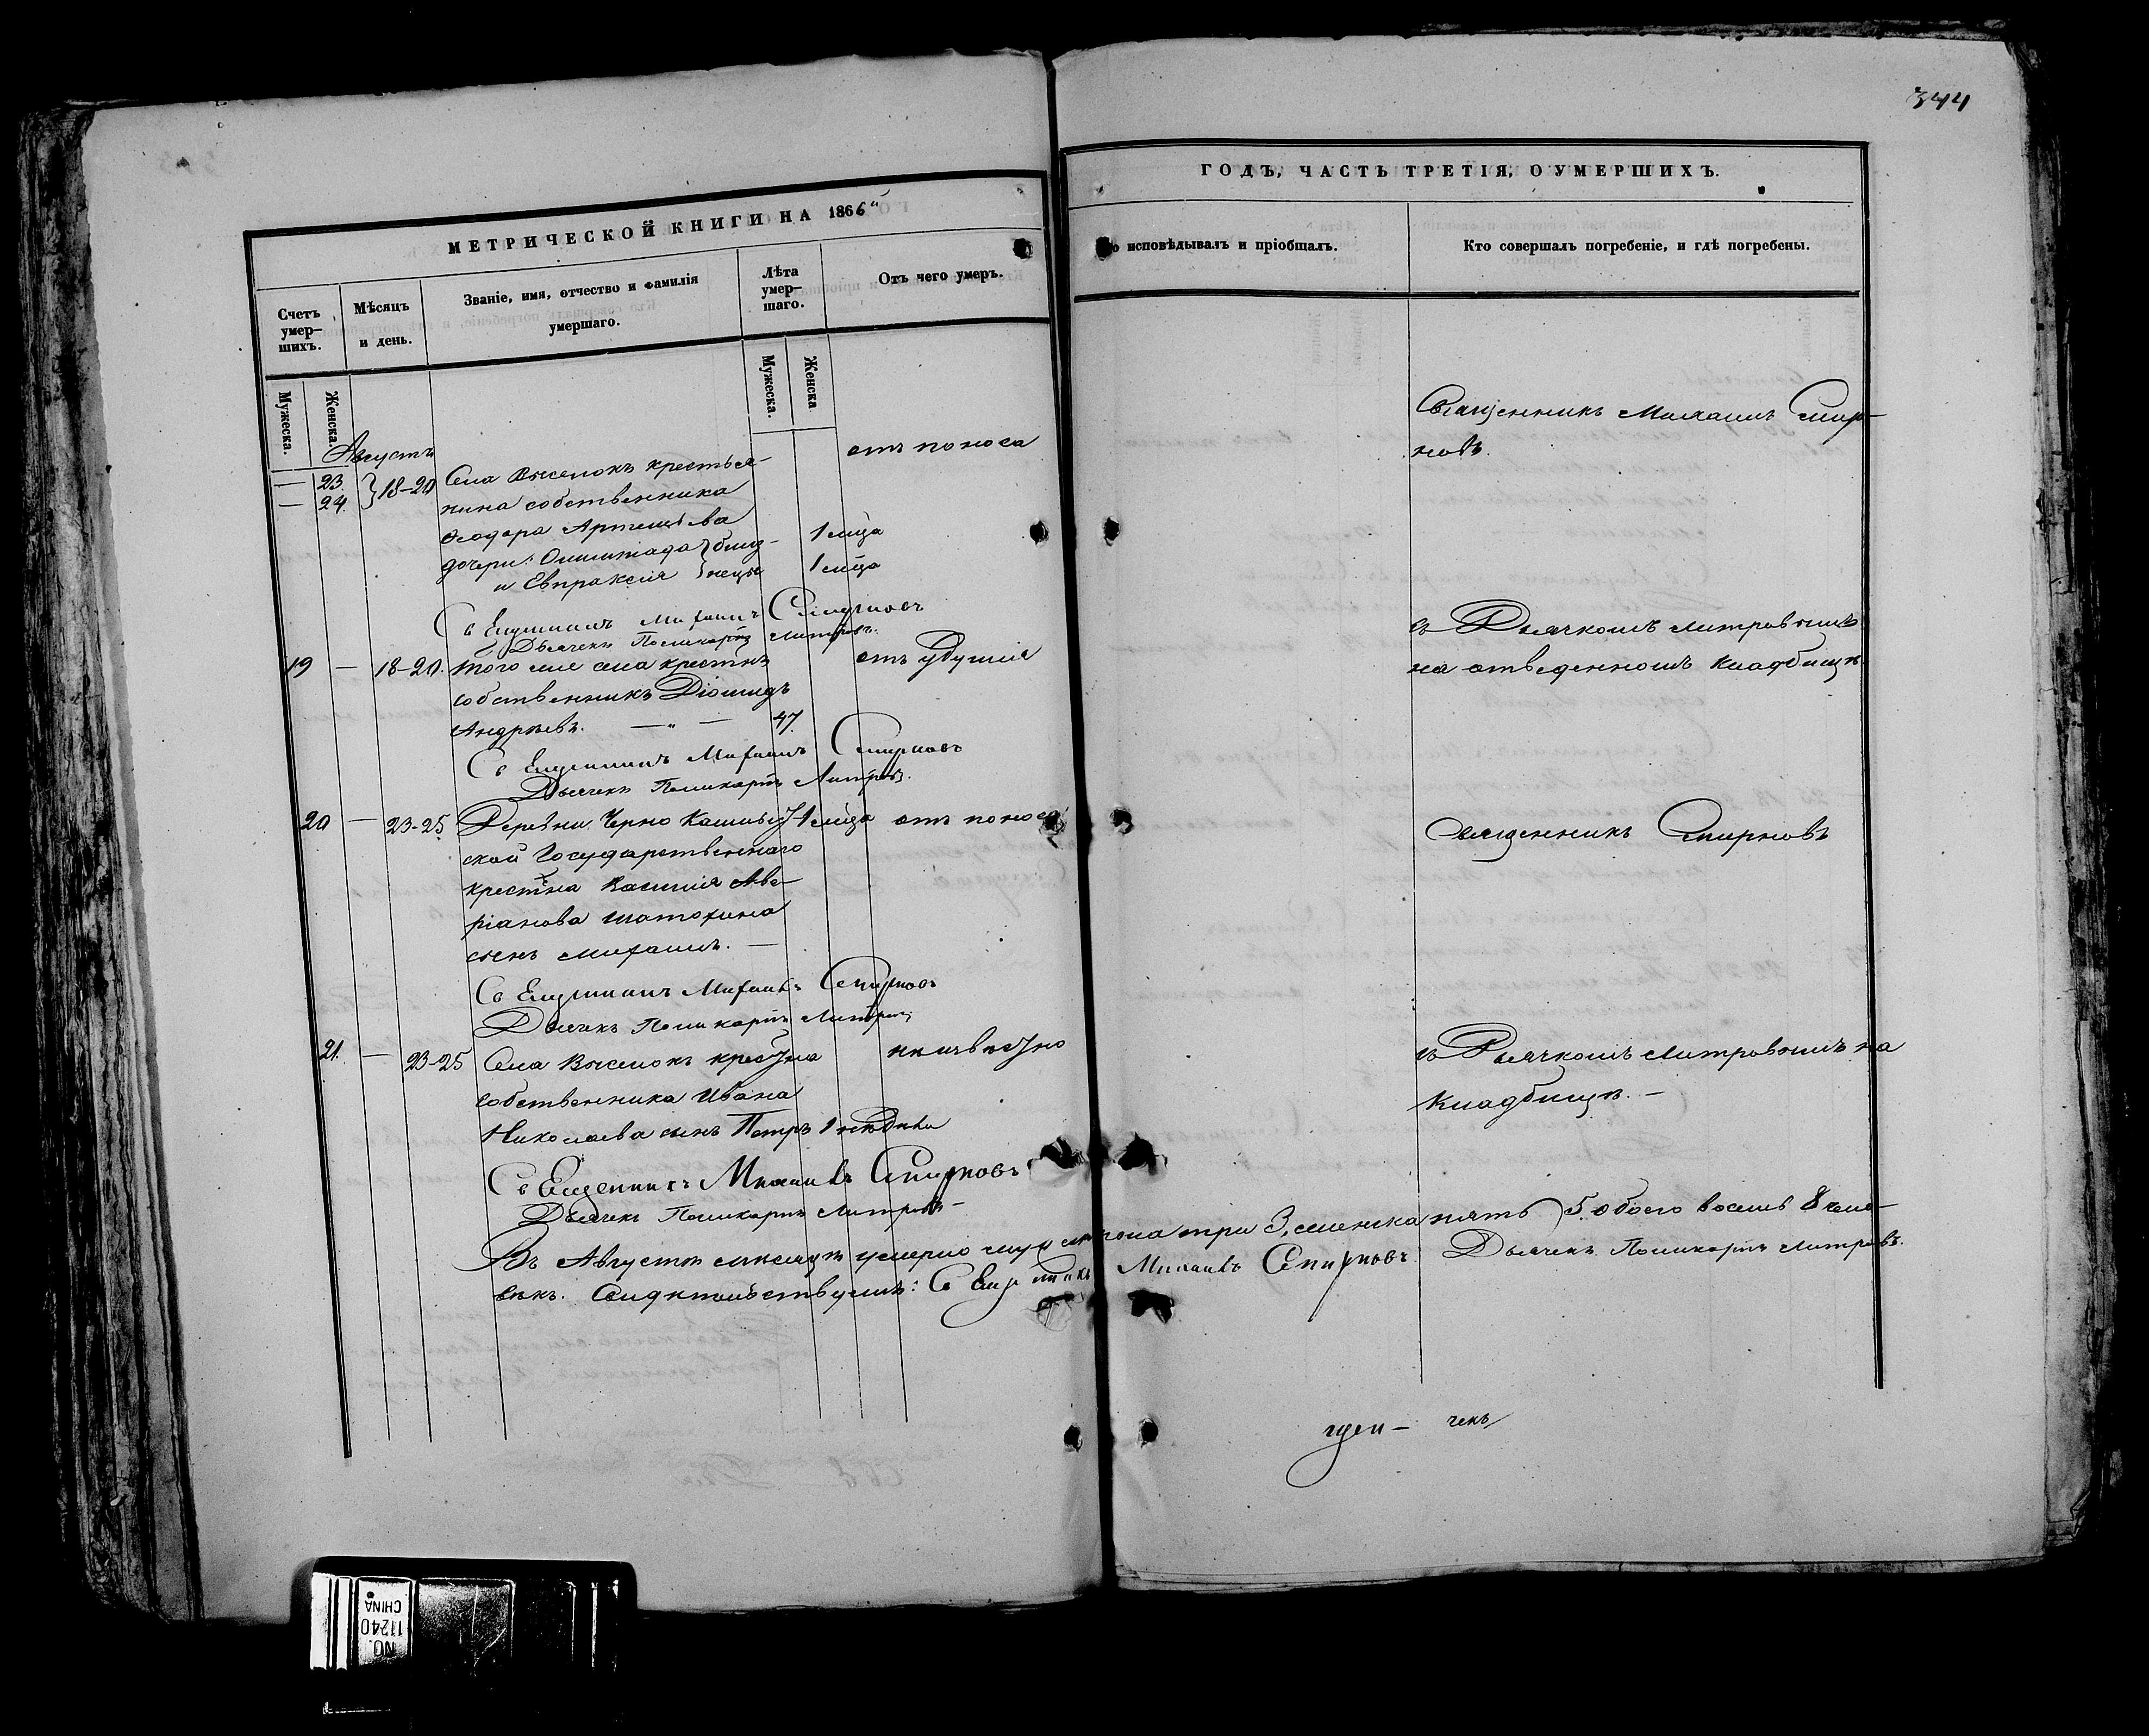 344
МЕТРИЧЕСКОЙ КНИГИ НА 1866
ГОДЪ, ЧАСТЬ ТРЕТІЯ, О УМЕРШИХЪ.
Счетъ умер-
шихъ.
Мѣсяцъ
и день.
Званіе, имя, отчество и фамилія
умершаго.
Лѣта
умер-
шаго.
Отъ чего умеръ.
исповѣдывалъ и пріобщалъ.
Кто совершалъ погребеніе, и гдѣ погребены.
Мужеска.
Женска.
Мужеска.
Женска
Августъ
— 23. } 18-20 Села Выселокъ крестья- отъ поноса
— 24.
нина собственника
Ѳеодора Артемьева
дочери: Олимпіада } близ- 1 м҃ца
и Евпраксія } нецы 1 м҃ца
Священникъ Михаилъ Смирновъ
Дьячекъ Поликарпъ Митровъ.
19 — 18-20. того же села крестнъ отъ удушія
собственникъ Діомидъ
Андреевъ. — „ — 47.
Священникъ Михаилъ Смирновъ
Дьячекъ Поликарпъ Митровъ.
20 — 23-25 Деревни Черно 1 м҃ца отъ поноса
ской Государственнаго
крестна Василія Аве-
ріанова Шатохина
сынъ Михаилъ. —
Священникъ Михаилъ Смирновъ
Дьячекъ Поликарпъ Митровъ
21. — 23-25 Села Выселокъ крестна неизвѣстно
собственника Ивана
Николаева сынъ Петръ 1 недѣли
Священникъ Михаилъ Смирновъ
Дьячекъ Поликарпъ Митровъ
Священникъ Михаилъ Смир-
новъ.
съ Дьячкомъ Митровымъ
на отведенномъ кладбищѣ
Священникъ Смирновъ
съ Дьячкомъ Митровымъ на
кладбищѣ. —
Въ Августѣ мѣсяцѣ умерло муж пола три 3, женска пять 5. обоего восемь 8 чело-
вѣкъ. Свидѣтельствуемъ: Священникъ Михаилъ Смирновъ Дьячекъ Поликарпъ Митровъ.
чекъ
NO.
11240
CHINA